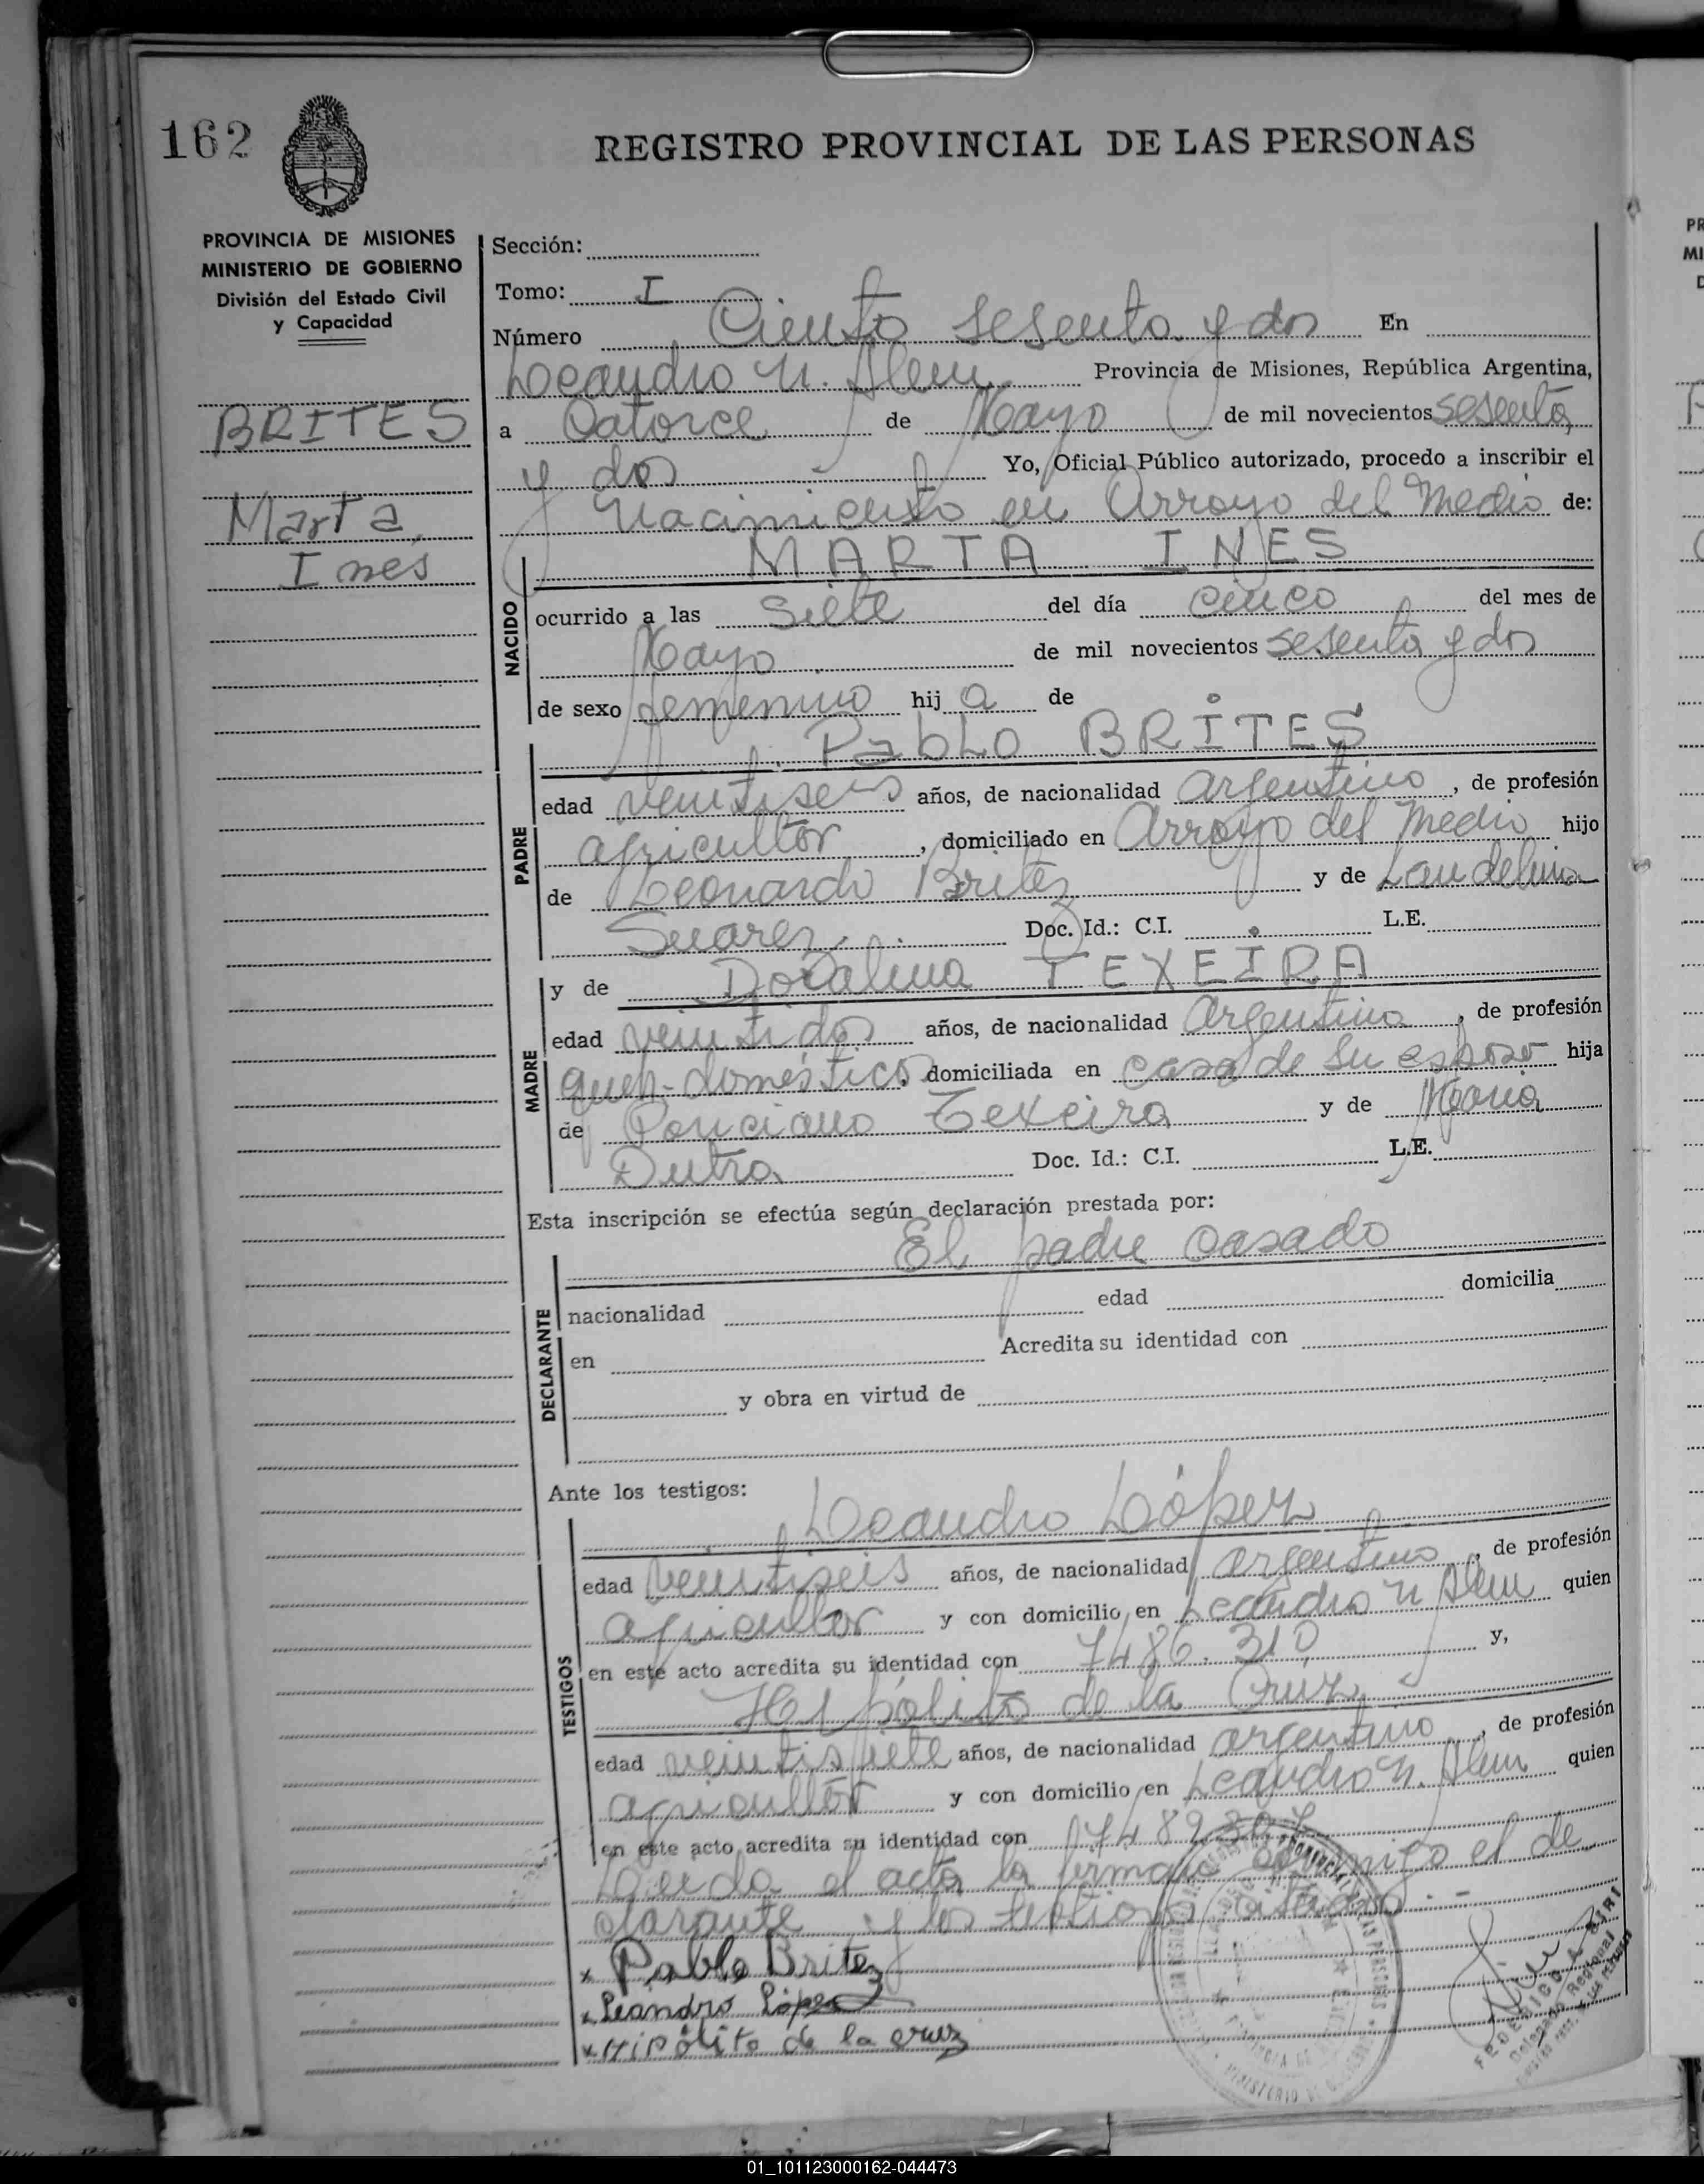 162
REGISTRO PROVINCIAL DE LAS PERSONAS
PROVINCIA DE MISIONES
MINISTERIO DE GOBIERNO
División del Estado Civil
y Capacidad
BRITES
Marta
Ines
Sección:
Tomo: I
Número Ciento sesenta y dos En
Leandro N. Alem Provincia de Misiones, República Argentina,
a Catorce de Mayo de mil novecientos sesenta
y dos Yo, Oficial Público autorizado, procedo a inscribir el
Nacimiento en Arroyo del Medio de:
MARTA INES
NACIDO
ocurrido a las Siete del día cinco del mes de
Mayo de mil novecientos sesenta y dos
de sexo femenino hij a de
Pablo BRITES
PADRE
edad veintiseis años, de nacionalidad argentino, de profesión
agricultor, domiciliado en Arroyo del Medio hijo
de Leonardo Britez y de Laudelina
Suarez Doc. Id.: C.I. L.E.
MADRE
y de Doralina TEXEIRA
edad veintidos años, de nacionalidad argentina, de profesión
queh-domésticos domiciliada en casa de su esposo hija
de Ponciano Texeira y de Maria
Dutra Doc. Id.: C.I. L.E.
Esta inscripción se efectúa según declaración prestada por:
El padre casado
DECLARANTE
nacionalidad edad domicilia
en Acredita su identidad con
y obra en virtud de
Ante los testigos:
Leandro López
TESTIGOS
edad veintiseis años, de nacionalidad argentino, de profesión
agricultor y con domicilio en Leandro N Alem quien
en este acto acredita su identidad con 7486.310 y,
Hipólito de la Cruz
edad veintisiete años, de nacionalidad argentino, de profesión
agricultor y con domicilio en Leandro N. Alem quien
en este acto acredita su identidad con
Leida el acta la firman conmigo el de
clarante y los testigos citados.-
x Pablo Britez
x Leandro López
x Hipólito de la cruz
Delegado Regional
01_101123000162-044473